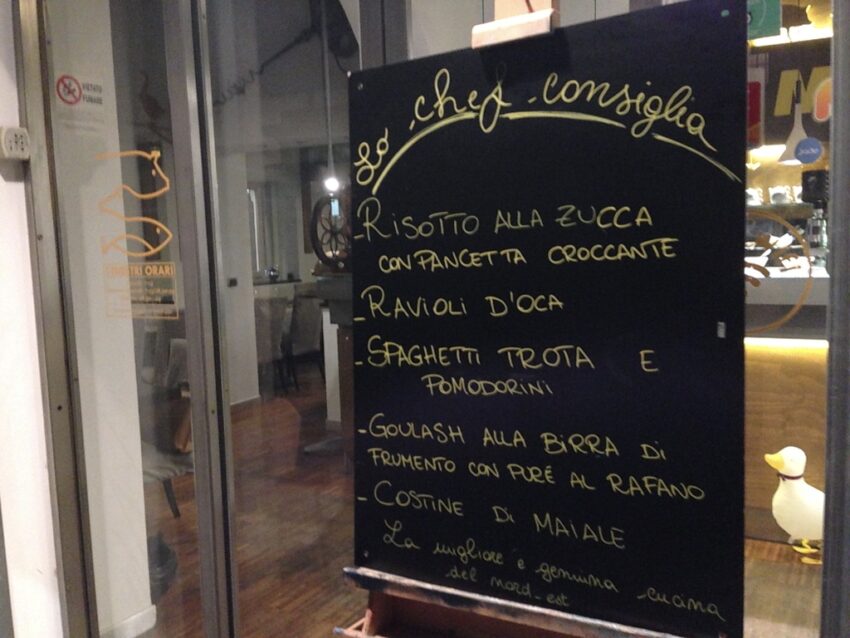 VIETATO
FUMARE
Lo chef consiglia
- RISOTTO ALLA ZUCCA
CON PANCETTA CROCCANTE
- RAVIOLI D'OCA
- SPAGHETTI TROTA E
POMODORINI
- GOULASH ALLA BIRRA DI
FRUMENTO CON PURÉ AL RAFANO
- COSTINE DI MAIALE
La migliore e genuina cucina
del nord-est
ORARI